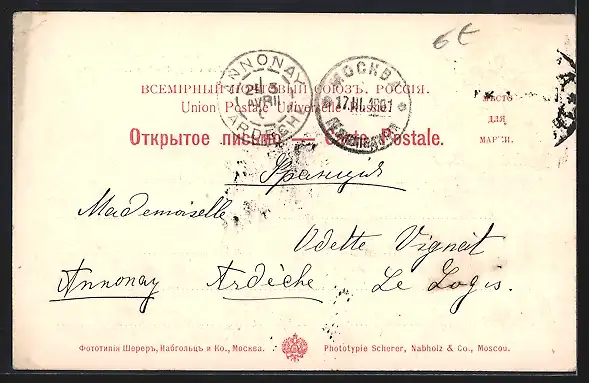 6€
ВСЕМІРНЫЙ ПОЧТОВЫЙ СОЮЗЪ. РОССІЯ.
Union Postale Universelle Russie
МѢСТО
ДЛЯ
МАРКИ.
Открытое письмо. — Carte Postale.
ANNONAY
AVRIL
ARDÈCHE
МОСКВА
17.III.1901
Франція
Mademoiselle
Odette Vignat
Annonay Ardèche Le Logis.
Фототипія Шереръ, Набгольцъ и Ко., Москва.
Phototypie Scherer, Nabholz & Co., Moscou.